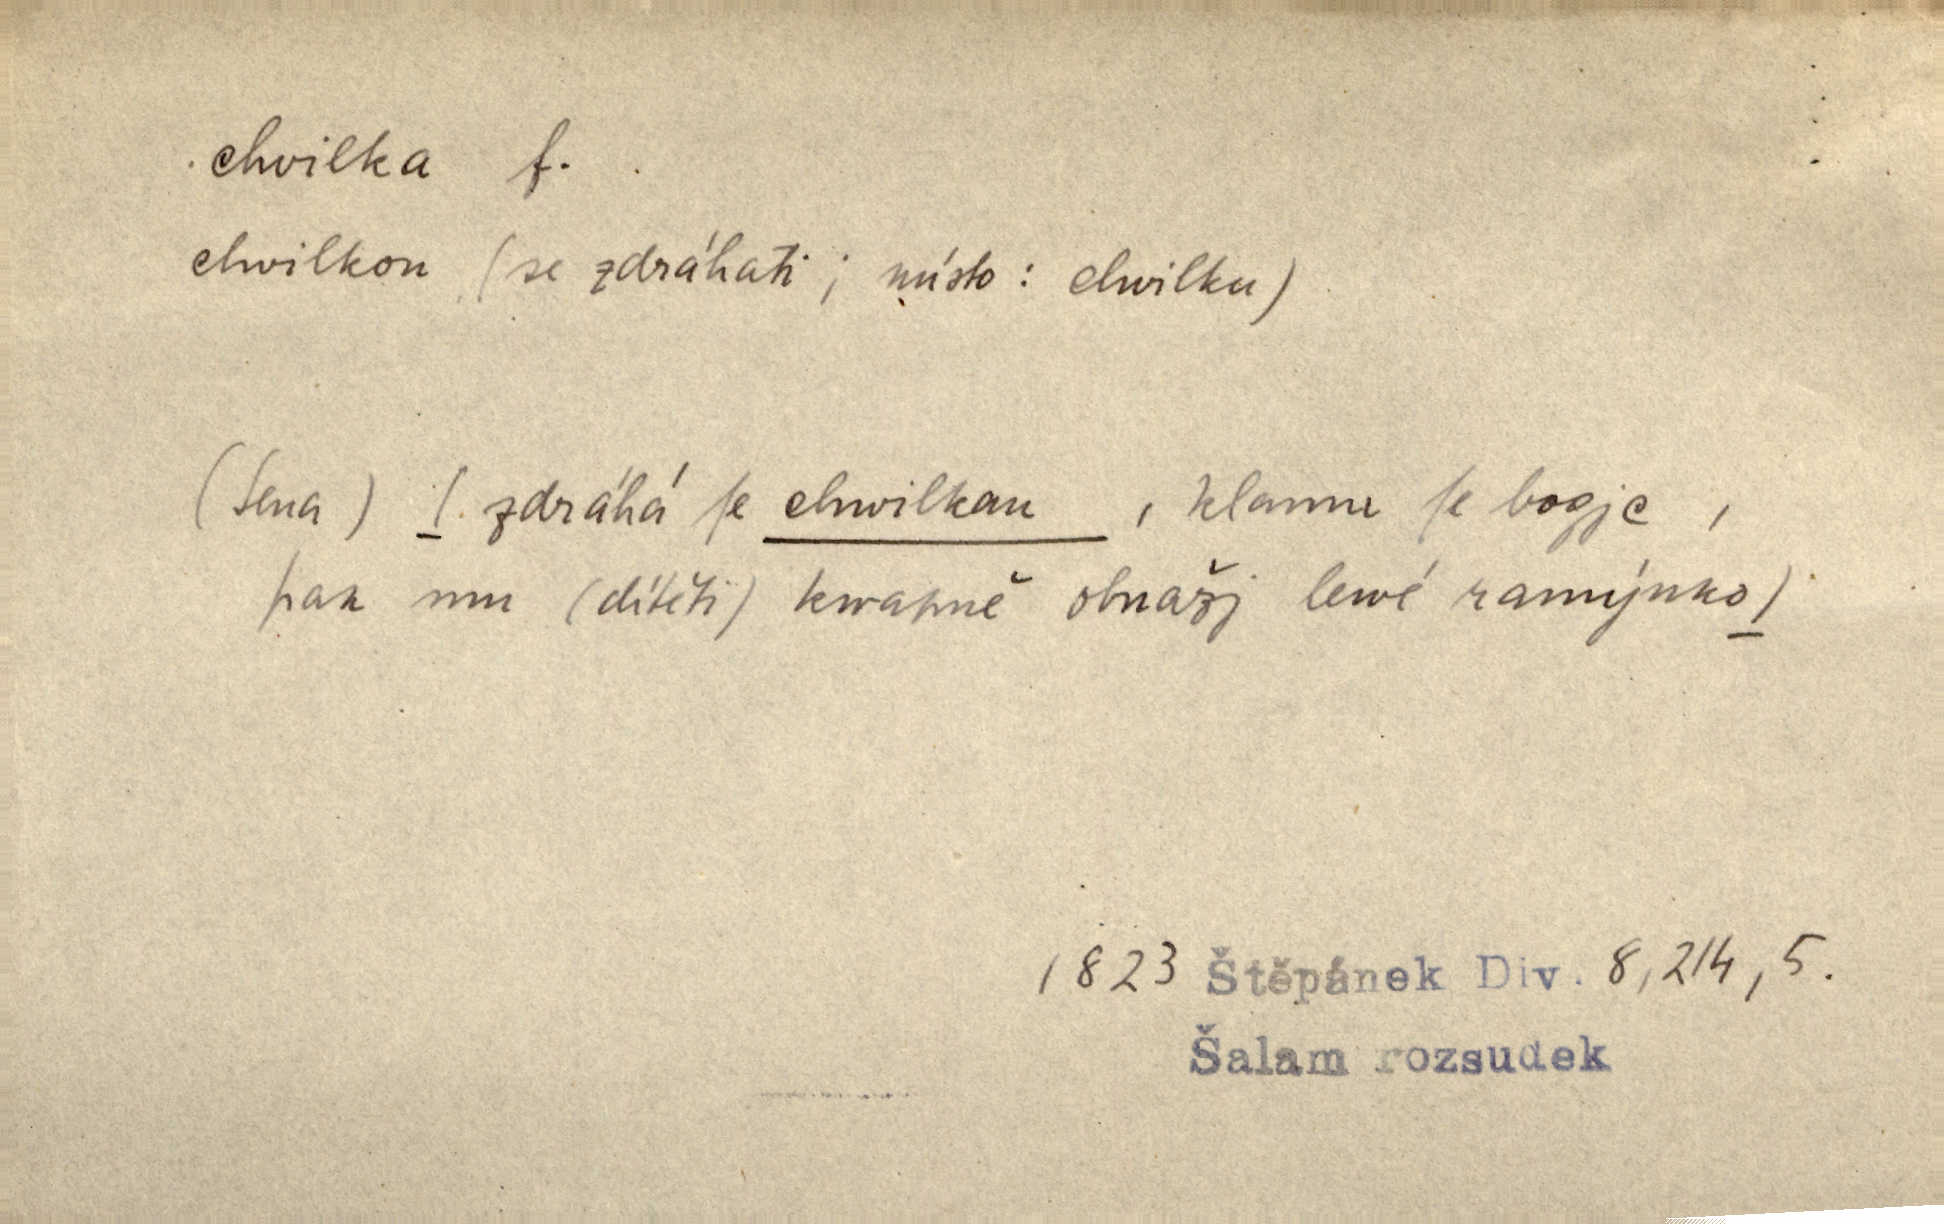 chvilka f.
chvilkou (se zdráhati; místo: chvilku)
(Žena) ( zdráhá ſe chwilkau , klamu ſe bogje ,
pak mu (dítěti) kwapně obnažj lewé ramýnko)
1823 Štěpánek Div. 8, 214, 5.
Šalam rozsudek